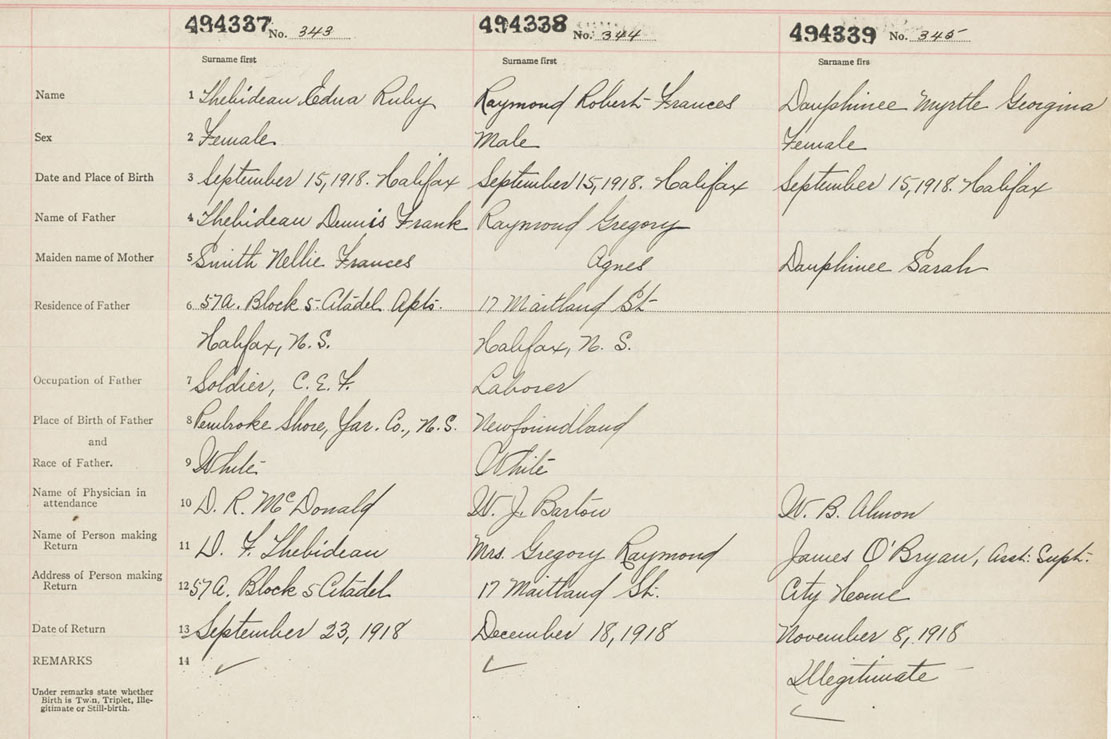 494337 No. 343 494338 No. 344 494339 No. 345
Surname first Surname first Surname firs
Name 1 Thebideau Edna Ruby Raymond Robert Frances Dauphinee Myrtle Georgina
Sex 2 Female Male Female
Date and Place of Birth 3 September 15, 1918. Halifax September 15, 1918. Halifax September 15, 1918. Halifax
Name of Father 4 Thebideau Dennis Frank Raymond Gregory
Maiden name of Mother 5 Smith Nellie Frances Agnes Dauphinee Sarah
Residence of Father 6 57A. Block 5 Citadel Apts. 17 Maitland St
Halifax, N.S. Halifax, N.S.
Occupation of Father 7 Soldier, C.E.F. Laborer
Place of Birth of Father 8 Pembroke Shore, Yar. Co., N.S. Newfoundland
and
Race of Father. 9 White White
Name of Physician in
attendance 10 D. R. McDonald W. J. Barton W. B. Almon
Name of Person making
Return 11 D. F. Thebideau Mrs. Gregory Raymond James O'Bryan, Asst. Supt.
Address of Person making
Return 12 57A. Block 5 Citadel 17 Maitland St. City Home
Date of Return 13 September 23, 1918 December 18, 1918 November 8, 1918
REMARKS 14 ✓ ✓ Illegitimate
Under remarks state whether
Birth is Twin, Triplet, Ille-
gitimate or Still-birth. ✓